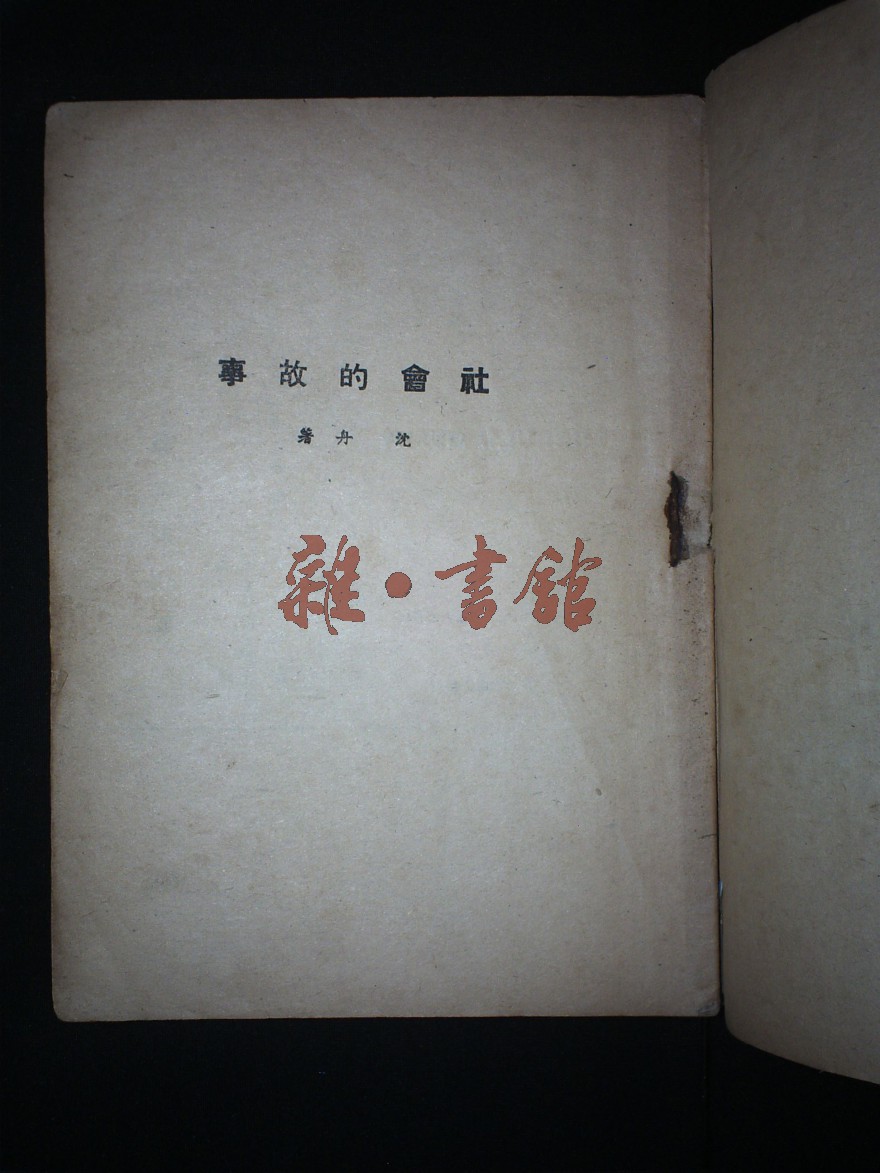 社會的故事
沈丹著
雜·書館